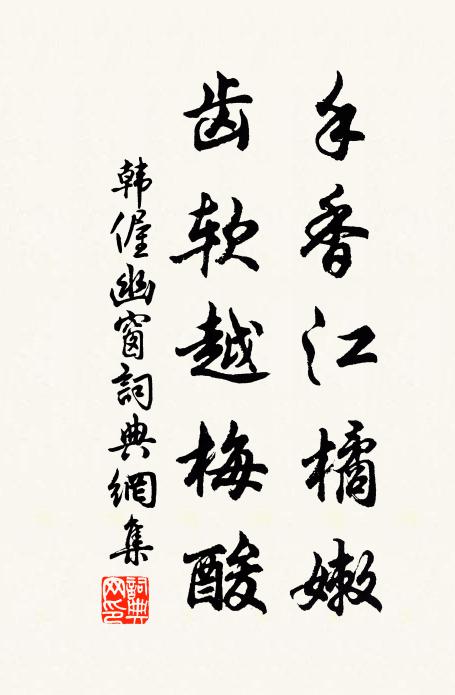 手香江橘嫩
齿软越梅酸
韩偓幽窗詞典網集
詞典网印